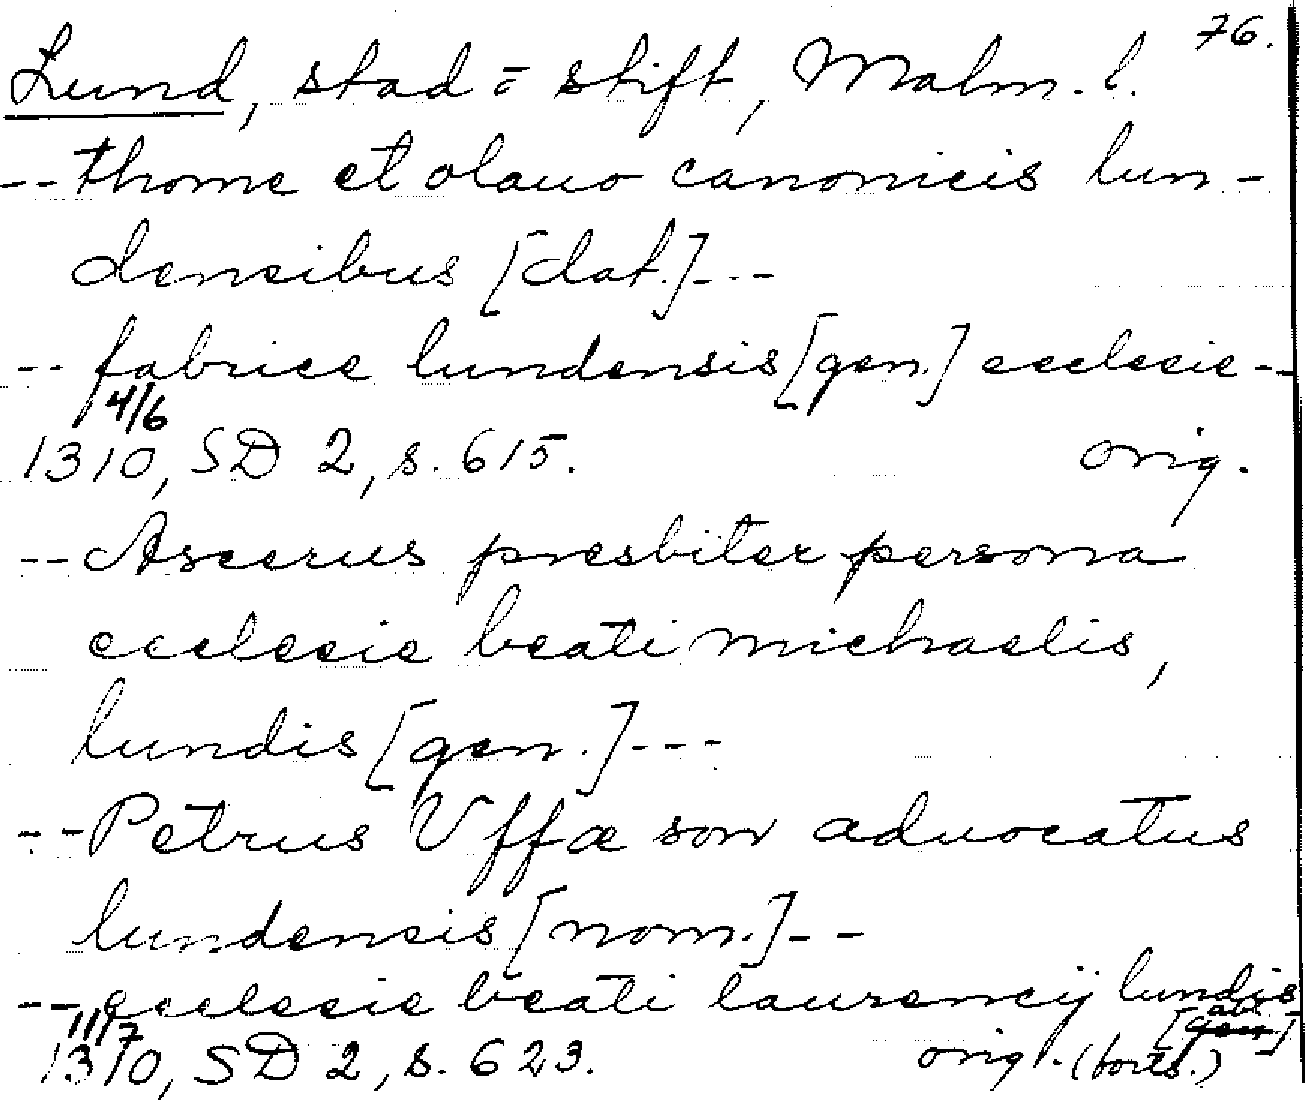 76.
Lund, stad o. stift, Malm. l.
-- thome et olauo canonicis lun-
densibus [dat.]---
-- fabrice lundensis [gen.] ecclesie--
4/6
1310, SD 2, s. 615. orig.
-- Ascerus presbiter persona
ecclesie beati michaelis,
lundis [gen.]---
-- Petrus Vffæ son aduocatus
lundensis [nom.]--
-- ecclesie beati laurencij lundis
11/7 [abl. gen.]
1310, SD 2, s. 623. orig. (forts.)